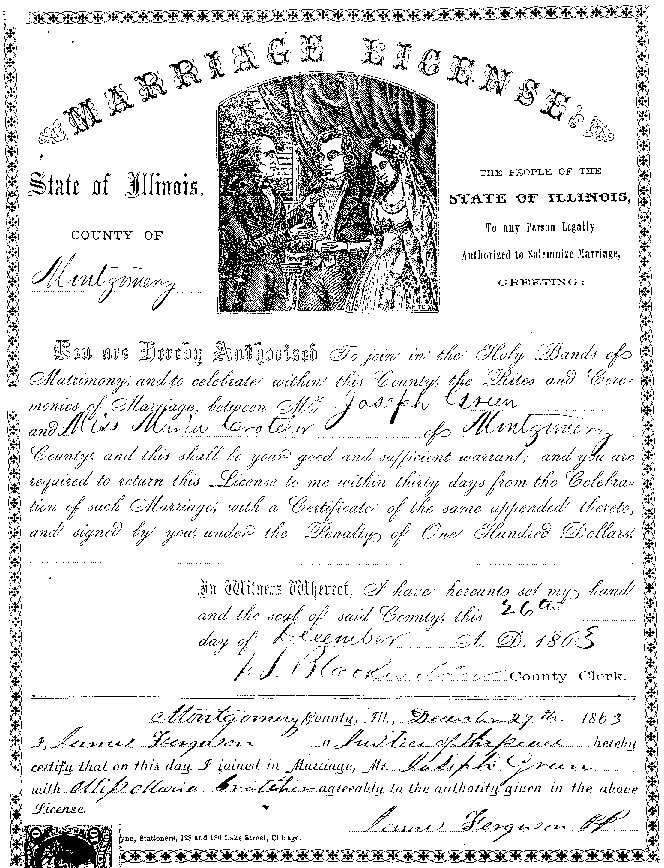 MARRIAGE LICENSE
State of Illinois,
COUNTY OF
Montgomery
THE PEOPLE OF THE
STATE OF ILLINOIS,
To any Person Legally
Authorized to Solemnize Marriage,
GREETING:
You are Hereby Authorized To join in the Holy Bands of
Matrimony, and to celebrate within this County, the Rites and Cere-
monies of Marriage, between Mr. Joseph Green
and Miss Maria of Montgomery
County, and this shall be your good and sufficient warrant; and you are
required to return this License to me within thirty days from the Celebra-
tion of such Marriage, with a Certificate of the same appended thereto,
and signed by you, under the Penalty of One Hundred Dollars.
In Witness Whereof, I have hereunto set my hand
and the seal of said County, this 26th
day of December A. D. 1863
County Clerk.
Montgomery County, Ill., December 27th 1863
I, James Ferguson a Justice of the peace hereby
certify that on this day I joined in Marriage, Mr. Joseph Green
with Miss Maria agreeably to the authority given in the above
License.
James Ferguson JP
Stationers, 128 and 130 Lake Street, Chicago.